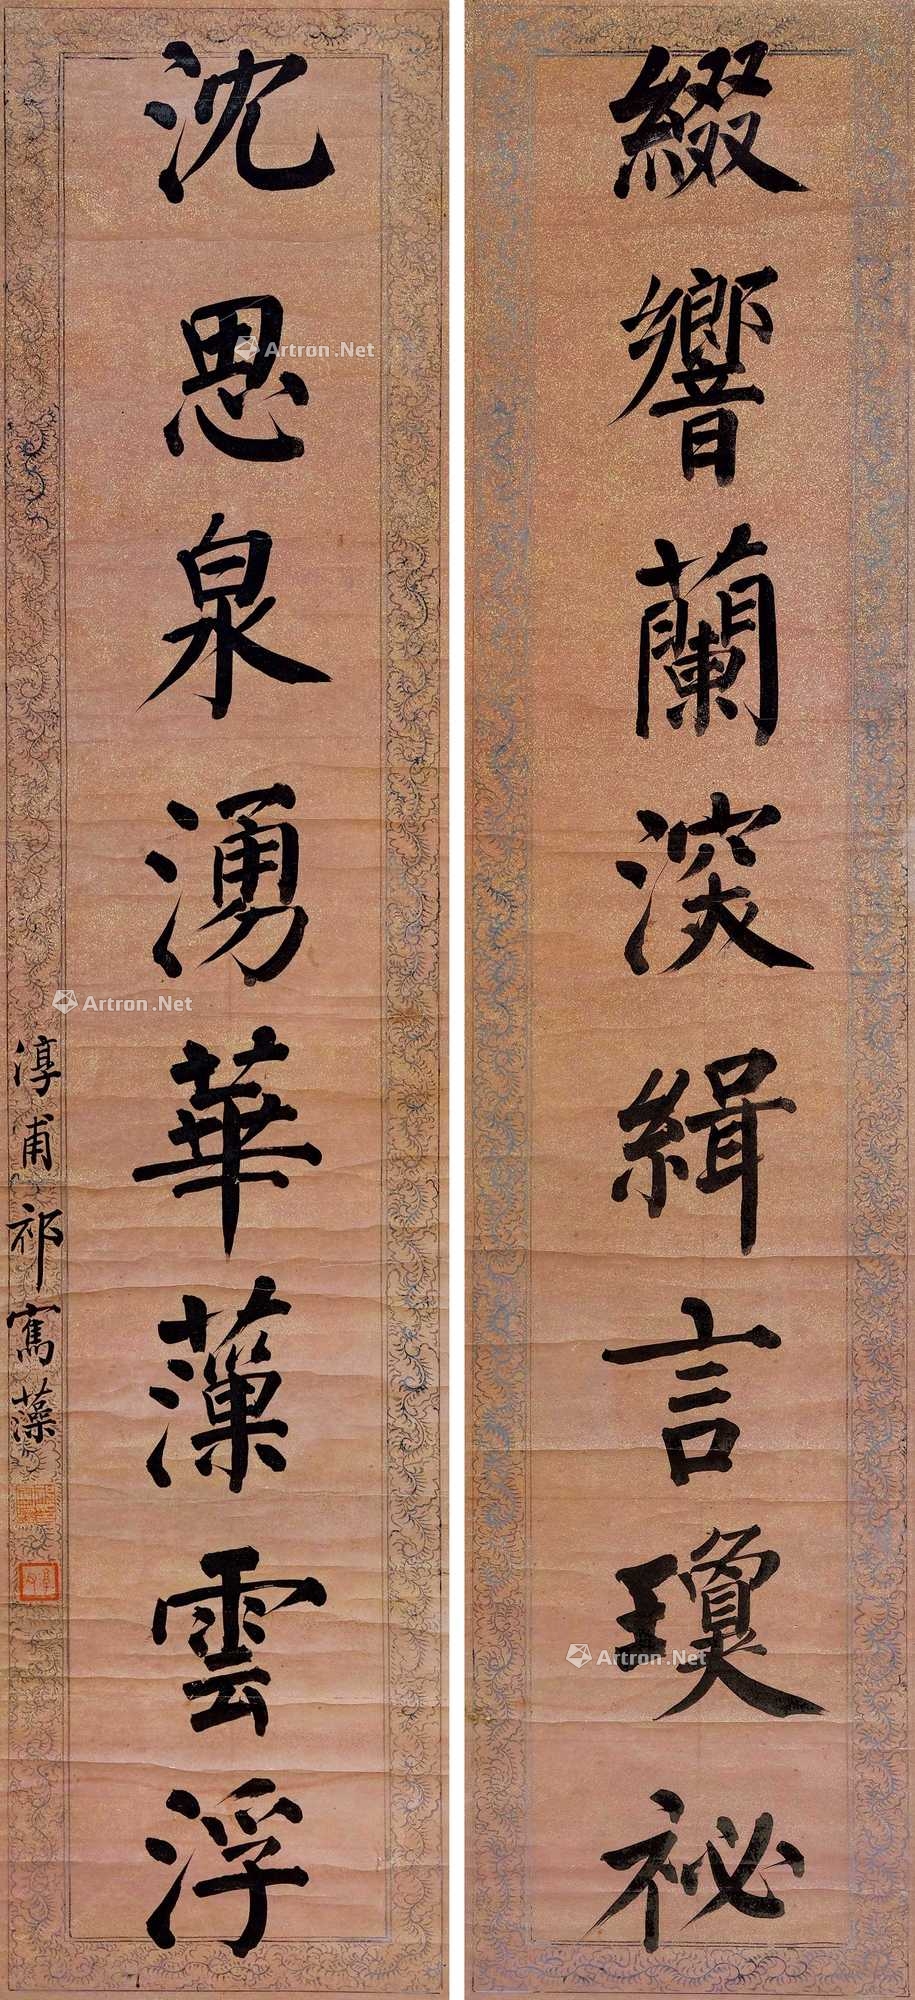 綴響蘭深緝言瓊祕
沈思泉湧華藻雲浮
淳甫祁寯藻
Artron.Net
Artron.Net
Artron.Net